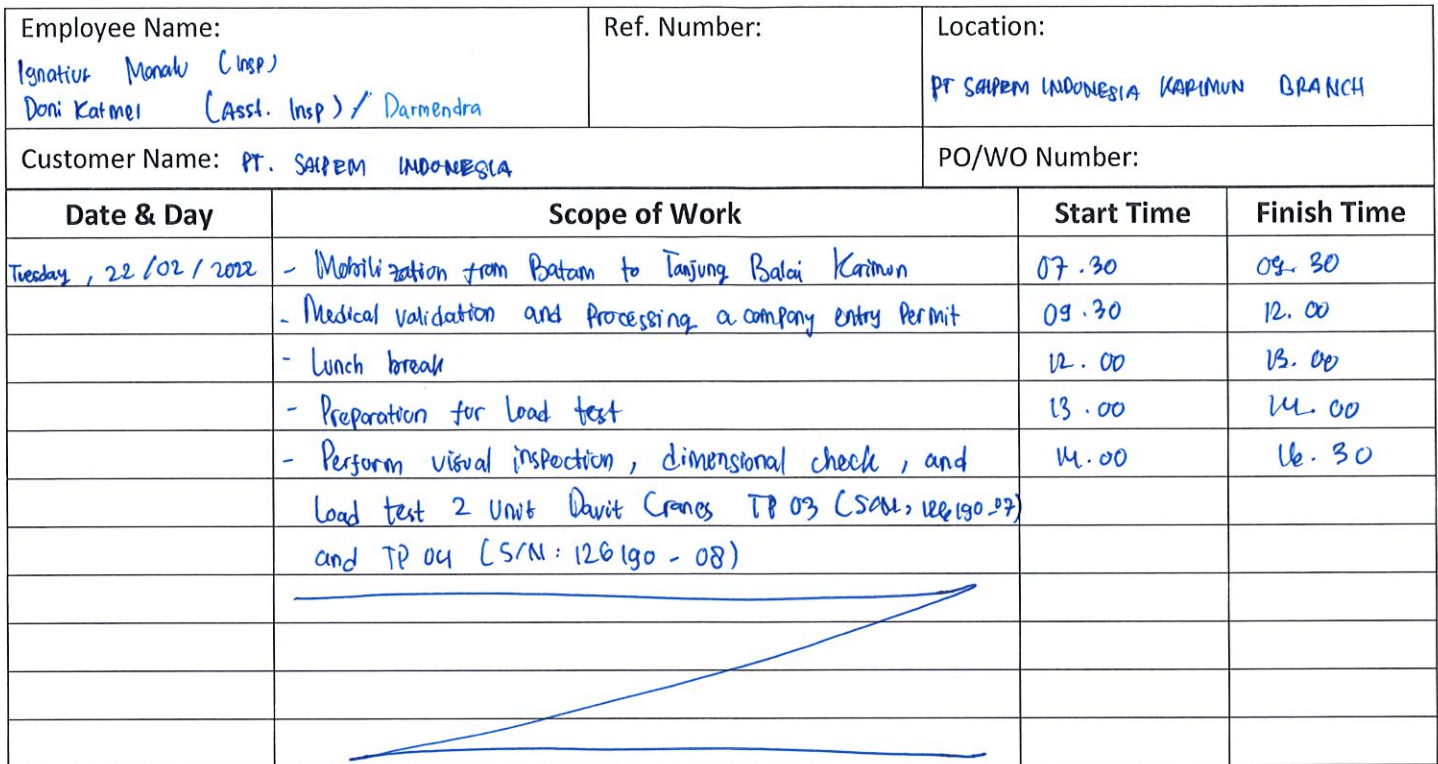 Employee Name: Ref. Number: Location:
Ignatius Manalu (Insp)
Doni Katmel (Asst. Insp) / Darmendra PT SAIPEM INDONESIA KARIMUN BRANCH
Customer Name: PT. SAIPEM INDONESIA PO/WO Number:
Date & Day Scope of Work Start Time Finish Time
Tuesday, 22/02/2022 - Mobilization from Batam to Tanjung Balai Karimun 07.30 09.30
- Medical validation and Processing a company entry Permit 09.30 12.00
- Lunch break 12.00 13.00
- Preparation for Load test 13.00 14.00
- Perform visual inspection, dimensional check, and 14.00 16.30
Load test 2 Unit Davit Cranes TP 03 (S/N: 126190-07)
and TP 04 (S/N: 126190-08)